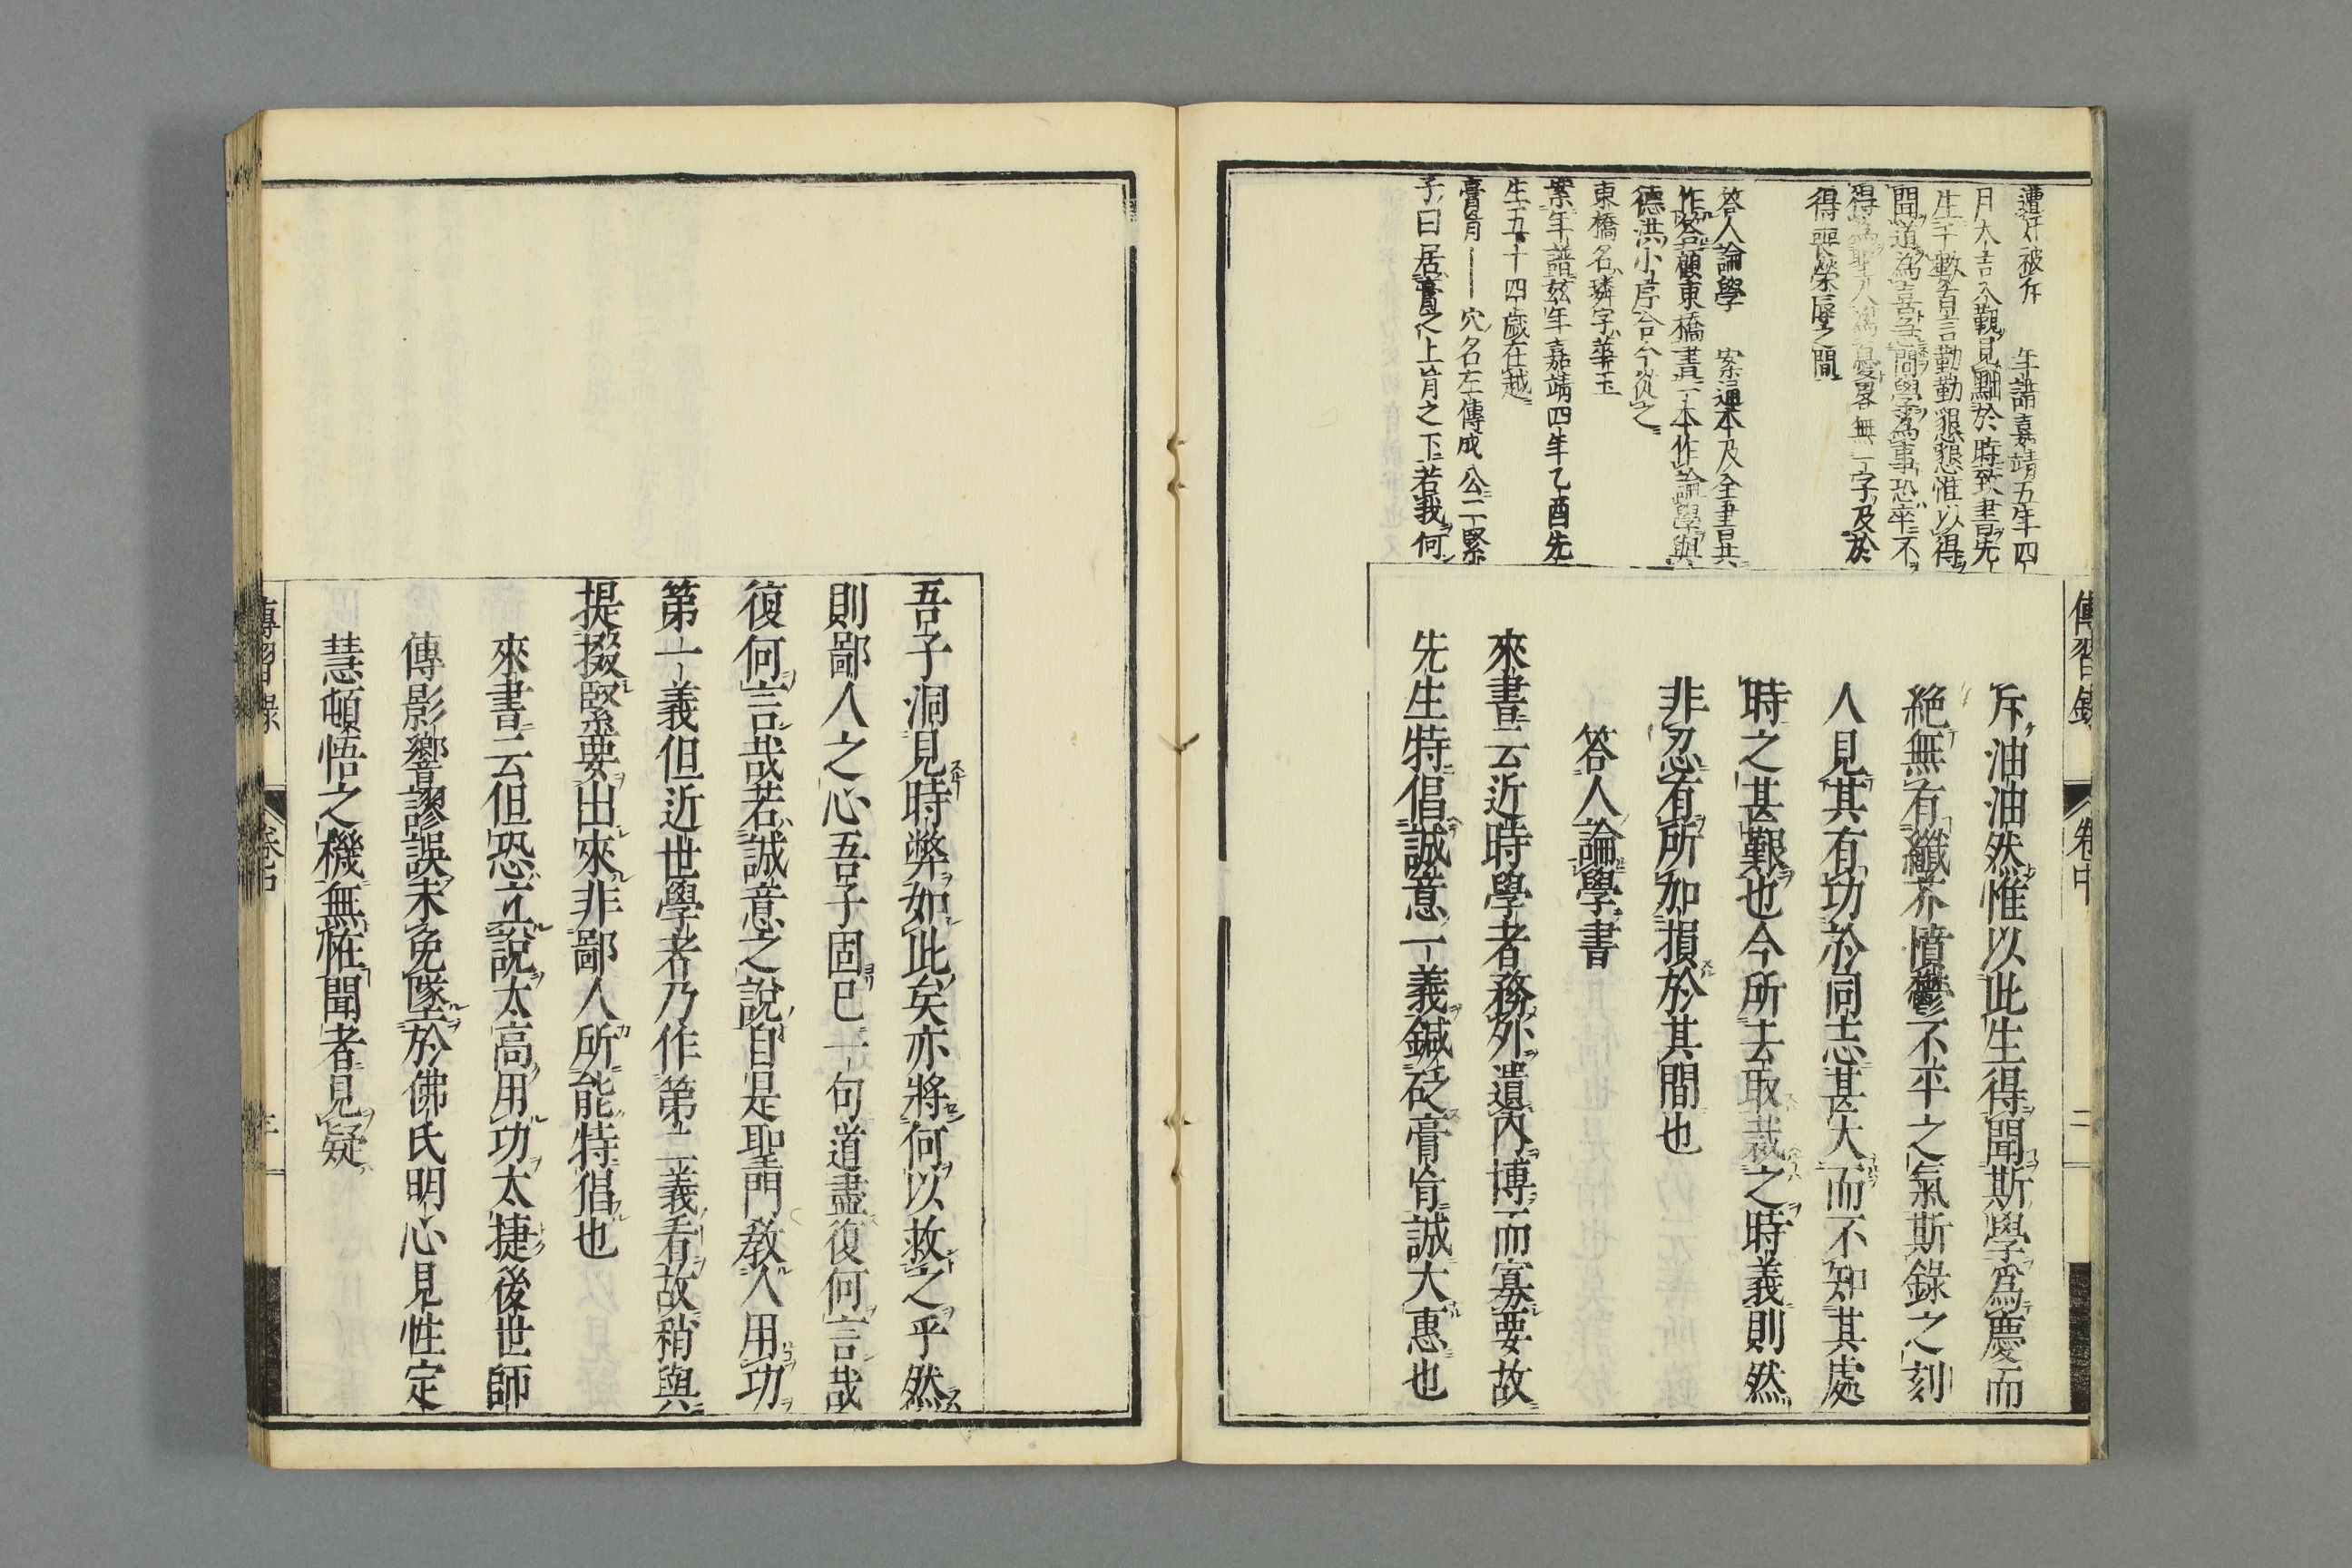 遭斥被斥　年譜嘉靖五年四
月大吉入覲見黜於時致書先
生千數百言勤勤懇懇惟以得
聞道爲喜急問學爲事恐卒不
得爲聖人爲憂畧無一字及於
得喪榮辱之間
答人論學　案通本及全書共
作答顧東橋書一本作論學與
德洪小序合今從之
東橋名璘字華玉
案年譜玆年嘉靖四年乙酉先
生五十四歲在越
膏肓｜穴名左傳成公二緊
子曰居膏之上肓之下若我何
傳習錄
卷中
二
斥油油然惟以此生得聞斯學爲慶而
絕無有纖芥憤鬱不平之氣斯錄之刻
人見其有功於同志甚大而不知其處
時之甚艱也今所去取裁之時義則然
非忍有所加損於其間也
答人論學書
來書云近時學者務外遺內博而寡要故
先生特倡誠意一義鍼砭膏肓誠大惠也
吾子洞見時弊如此矣亦將何以救之乎然
則鄙人之心吾子固已一句道盡復何言哉
復何言哉若誠意之說自是聖門教人用功
第一義但近世學者乃作第二義看故稍與
提掇緊要出來非鄙人所能特倡也
來書云但恐立說太高用功太捷後世師
傳影響謬誤未免墜於佛氏明心見性定
慧頓悟之機無怪聞者見疑
傳習錄